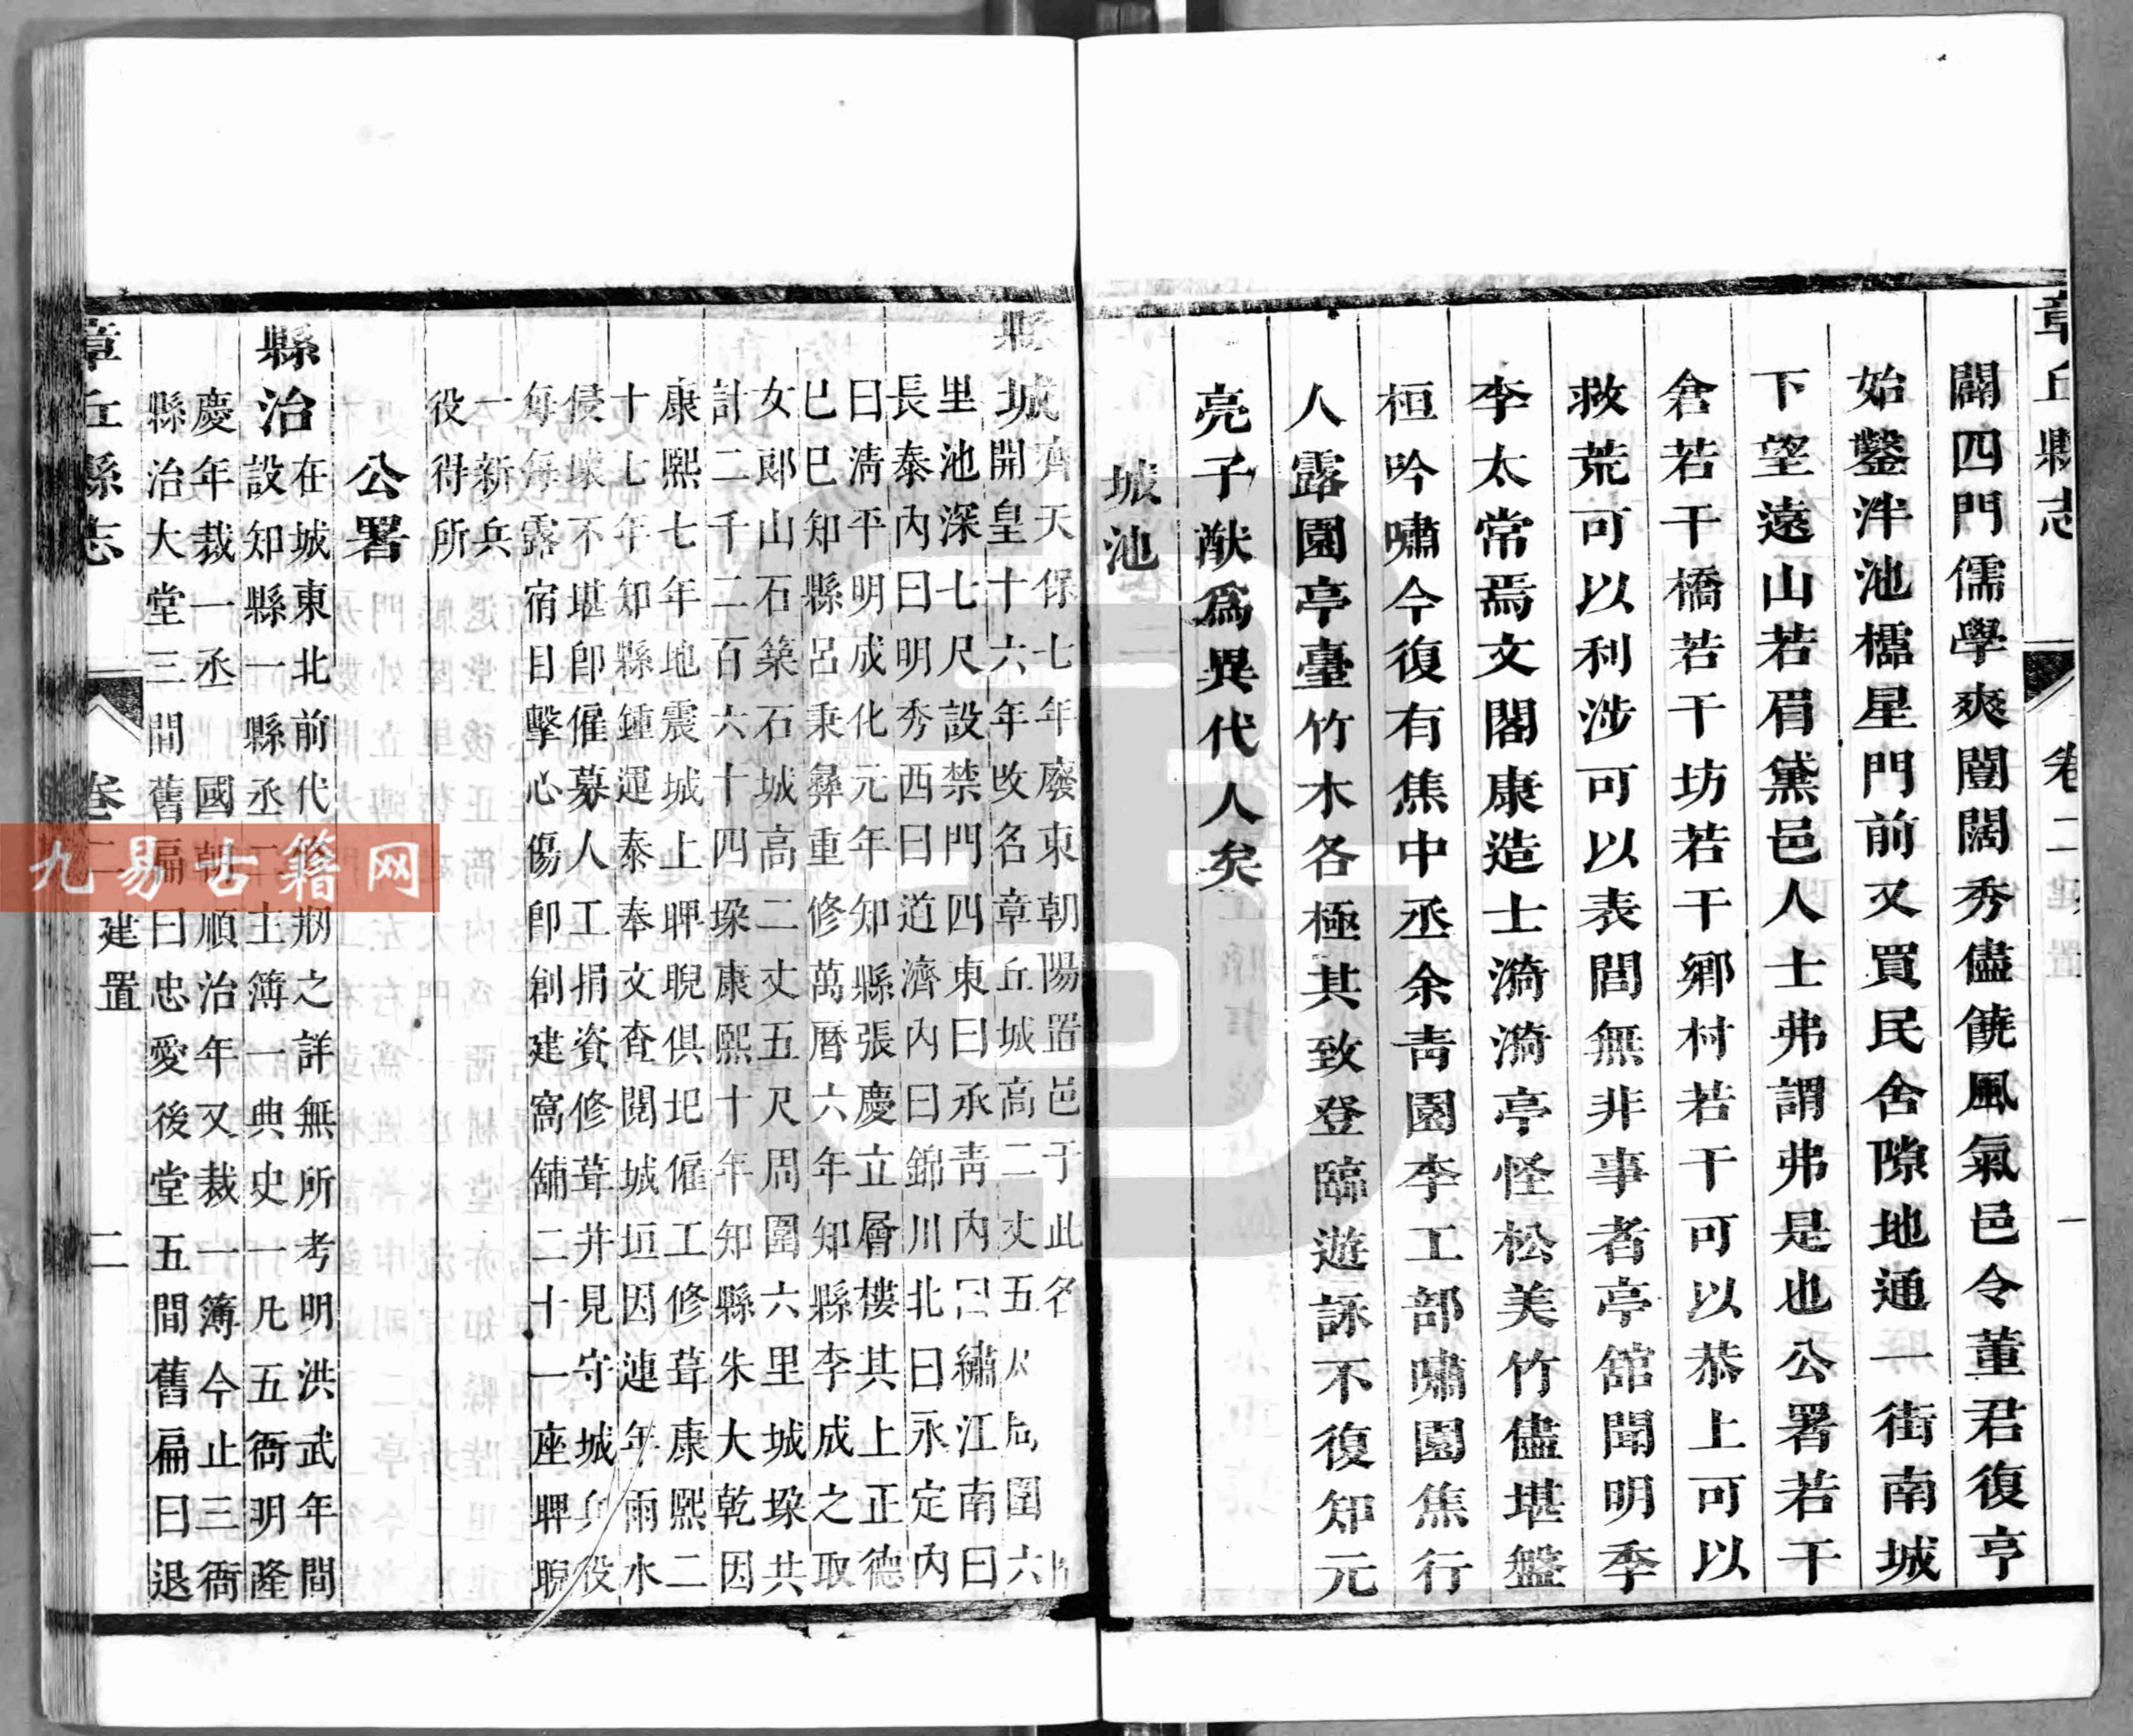 章丘縣志
卷二建置
一
闢四門儒學爽闓闊秀儘饒風氣邑令董君復亨
始鑿泮池櫺星門前又買民舍隙地通一街南城
下望遠山若眉黛邑人士弗謂弗是也公署若干
倉若干橋若干坊若干鄉村若干可以恭上可以
救荒可以利涉可以表閭無非事者亭館聞明季
李太常焉文閣康造士漪漪亭怪松美竹儘堪盤
桓吟嘯今復有焦中丞余青園李工部嘯園焦行
人露園亭臺竹木各極其致登臨遊詠不復知元
亮子猷爲異代人矣
城池
縣城
齊天保七年廢東朝陽置邑于此名
開皇十六年改名章丘城高二丈五尺周圍六
里池深七尺設禁門四東曰承青內曰繡江南曰
長泰內曰明秀西曰道濟內曰錦川北曰永定內
曰清平明成化元年知縣張慶立層樓其上正德
己巳知縣呂秉彝重修萬曆六年知縣李成之取
女郎山石築石城高二丈五尺周圍六里城垛共
計二千二百六十四垛康熙十年知縣朱大乾因
康熙七年地震城上睥睨俱圮僱工修葺康熙二
十七年知縣鍾運泰奉文查閱城垣因連年雨水
侵壞不堪卽僱募人工捐資修葺并見守城兵役
每每露宿目擊心傷卽創建窩舖二十一座睥睨
一新兵
役得所
公署
縣治
在城東北前代修剏之詳無所考明洪武年間
設知縣一縣丞二主簿一典史一凡五衙明隆
慶年裁一丞 國朝順治年又裁一簿今止三衙
縣治大堂三間舊扁曰忠愛後堂五間舊扁曰退
章丘縣志
卷二
建置
二
九易古籍网